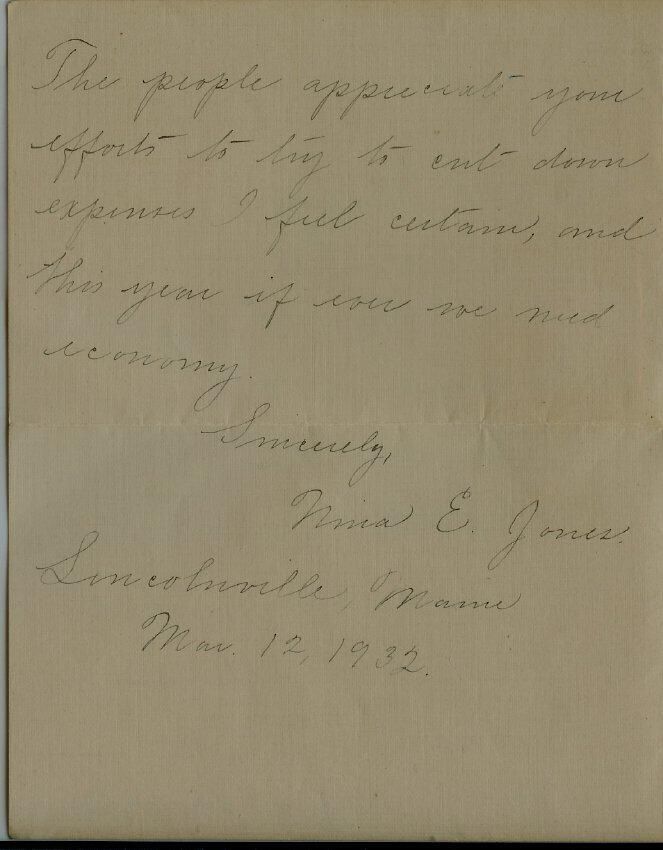 The people appreciate your
efforts to try to cut down
expenses I feel certain, and
this year if ever we need
economy.
Sincerely,
Nina E. Jones.
Lincolnville, Maine
Mar. 12, 1932.